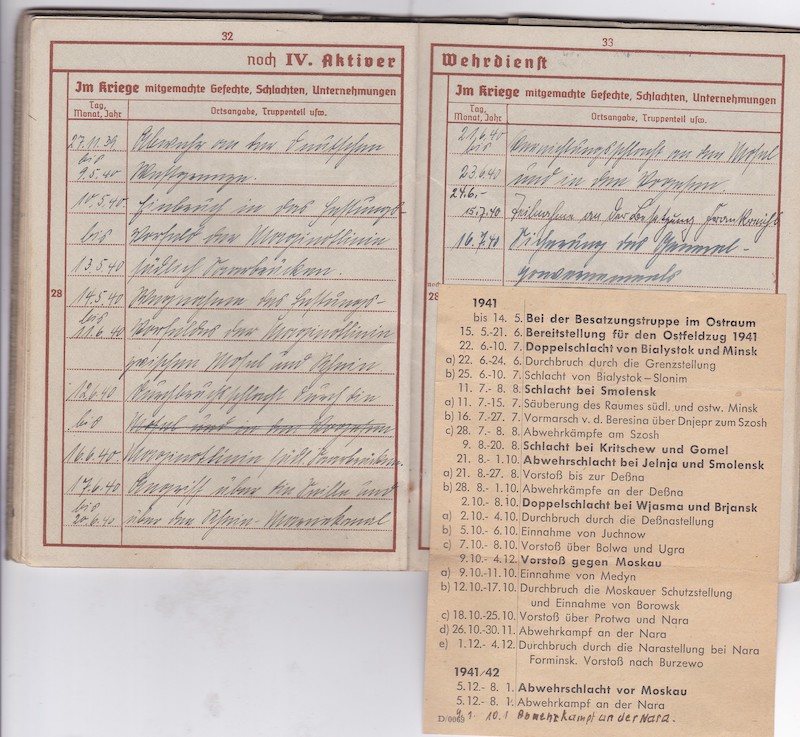 32
noch IV. Aktiver
Im Kriege mitgemachte Gefechte, Schlachten, Unternehmungen
Tag, Monat, Jahr
Ortsangabe, Truppenteil usw.
27.11.39 Abwehr an der Deutschen
bis
9.5.40 Westgrenze.
10.5.40 Einbruch in das Festungs-
bis Vorfeld der Maginotlinie
13.5.40 südlich Saarbrücken.
28
14.5.40 Wegnahme des Festungs-
bis
11.6.40 Vorfeldes der Maginotlinie
zwischen Mosel und Rhein
12.6.40 Durchbruchschlacht durch die
bis Mosel und in den Vogesen
16.6.40 Maginotlinie südl. Saarbrücken.
17.6.40 Angriff über die Seille und
bis
20.6.40 über den Rhein-Marnekanal
33
Wehrdienst
Im Kriege mitgemachte Gefechte, Schlachten, Unternehmungen
Tag, Monat, Jahr
Ortsangabe, Truppenteil usw.
21.6.40
bis Vernichtungsschlacht an der Mosel
23.6.40 und in den Vogesen
24.6.-
15.7.40 Teilnahme an der Besetzung Frankreichs
16.7.40 Sicherung des General-
gouvernements
1941
bis 14. 5. Bei der Besatzungstruppe im Ostraum
15. 5.-21. 6. Bereitstellung für den Ostfeldzug 1941
22. 6.-10. 7. Doppelschlacht von Bialystok und Minsk
a) 22. 6.-24. 6. Durchbruch durch die Grenzstellung
b) 25. 6.-10. 7. Schlacht von Bialystok—Slonim
11. 7.- 8. 8. Schlacht bei Smolensk
a) 11. 7.-15. 7. Säuberung des Raumes südl. und ostw. Minsk
b) 16. 7.-27. 7. Vormarsch v. d. Beresina über Dnjepr zum Szosh
c) 28. 7.- 8. 8. Abwehrkämpfe am Szosh
9. 8.-20. 8. Schlacht bei Kritschew und Gomel
21. 8.- 1.10. Abwehrschlacht bei Jelnja und Smolensk
a) 21. 8.-27. 8. Vorstoß bis zur Deßna
b) 28. 8.- 1.10. Abwehrkämpfe an der Deßna
2.10.- 8.10. Doppelschlacht bei Wjasma und Brjansk
a) 2.10.- 4.10. Durchbruch durch die Deßnastellung
b) 5.10.- 6.10. Einnahme von Juchnow
c) 7.10.- 8.10. Vorstoß über Bolwa und Ugra
9.10.- 4.12. Vorstoß gegen Moskau
a) 9.10.-11.10. Einnahme von Medyn
b) 12.10.-17.10. Durchbruch die Moskauer Schutzstellung
und Einnahme von Borowsk
c) 18.10.-25.10. Vorstoß über Protwa und Nara
d) 26.10.-30.11. Abwehrkampf an der Nara
e) 1.12.- 4.12. Durchbruch durch die Narastellung bei Nara
Forminsk. Vorstoß nach Burzewo
1941/42
5.12.- 8. 1. Abwehrschlacht vor Moskau
5.12.- 8. 1. Abwehrkampf an der Nara
9.1. 10.1 Abwehrkampf an der Nara.
D/0069